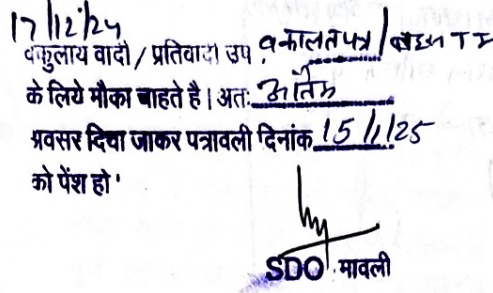 17/12/24
वकुलाय वादी / प्रतिवादी उप. वकालतपत्र / बहस T I
के लिये मौका चाहते है। अतः अंतिम
अवसर दिया जाकर पत्रावली दिनांक 15/1/25
को पेंश हो '
SDO मावली